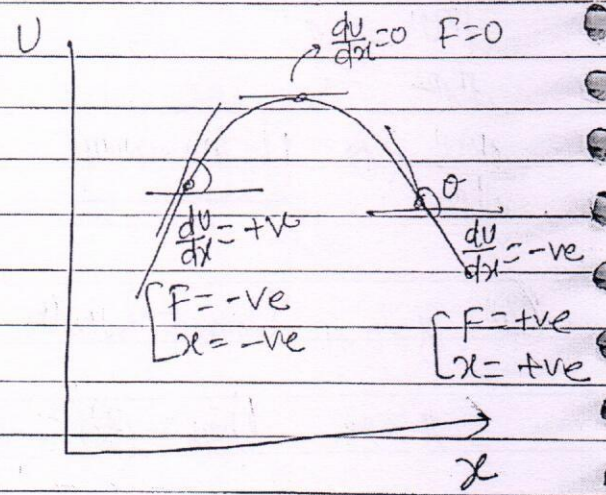 U
dU/dx=0 F=0
θ
dU/dx=+ve
dU/dx=-ve
F=-ve
x=-ve
F=+ve
x=+ve
x